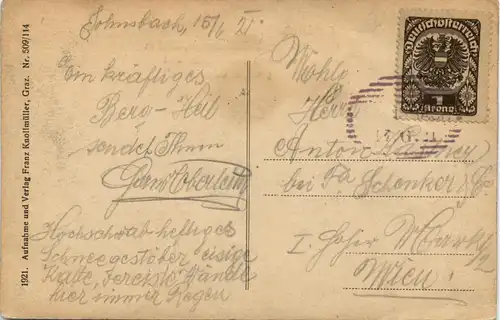 Johnsbach, 15/6 21.
Ein kräftiges
Berg-Heil
sendet Ihnen
Hochschwab heftiges
Schneegestöber eisige
Kälte, Vereiste Wände
hier immer Regen
1921. Aufnahme und Verlag Franz Knollmüller, Graz. Nr. 509/114
Deutschösterreich
1
Krone
Wohlg
Herrn
Anton
bei Fa Schenker & Co
I. Hoher Markt
Wien